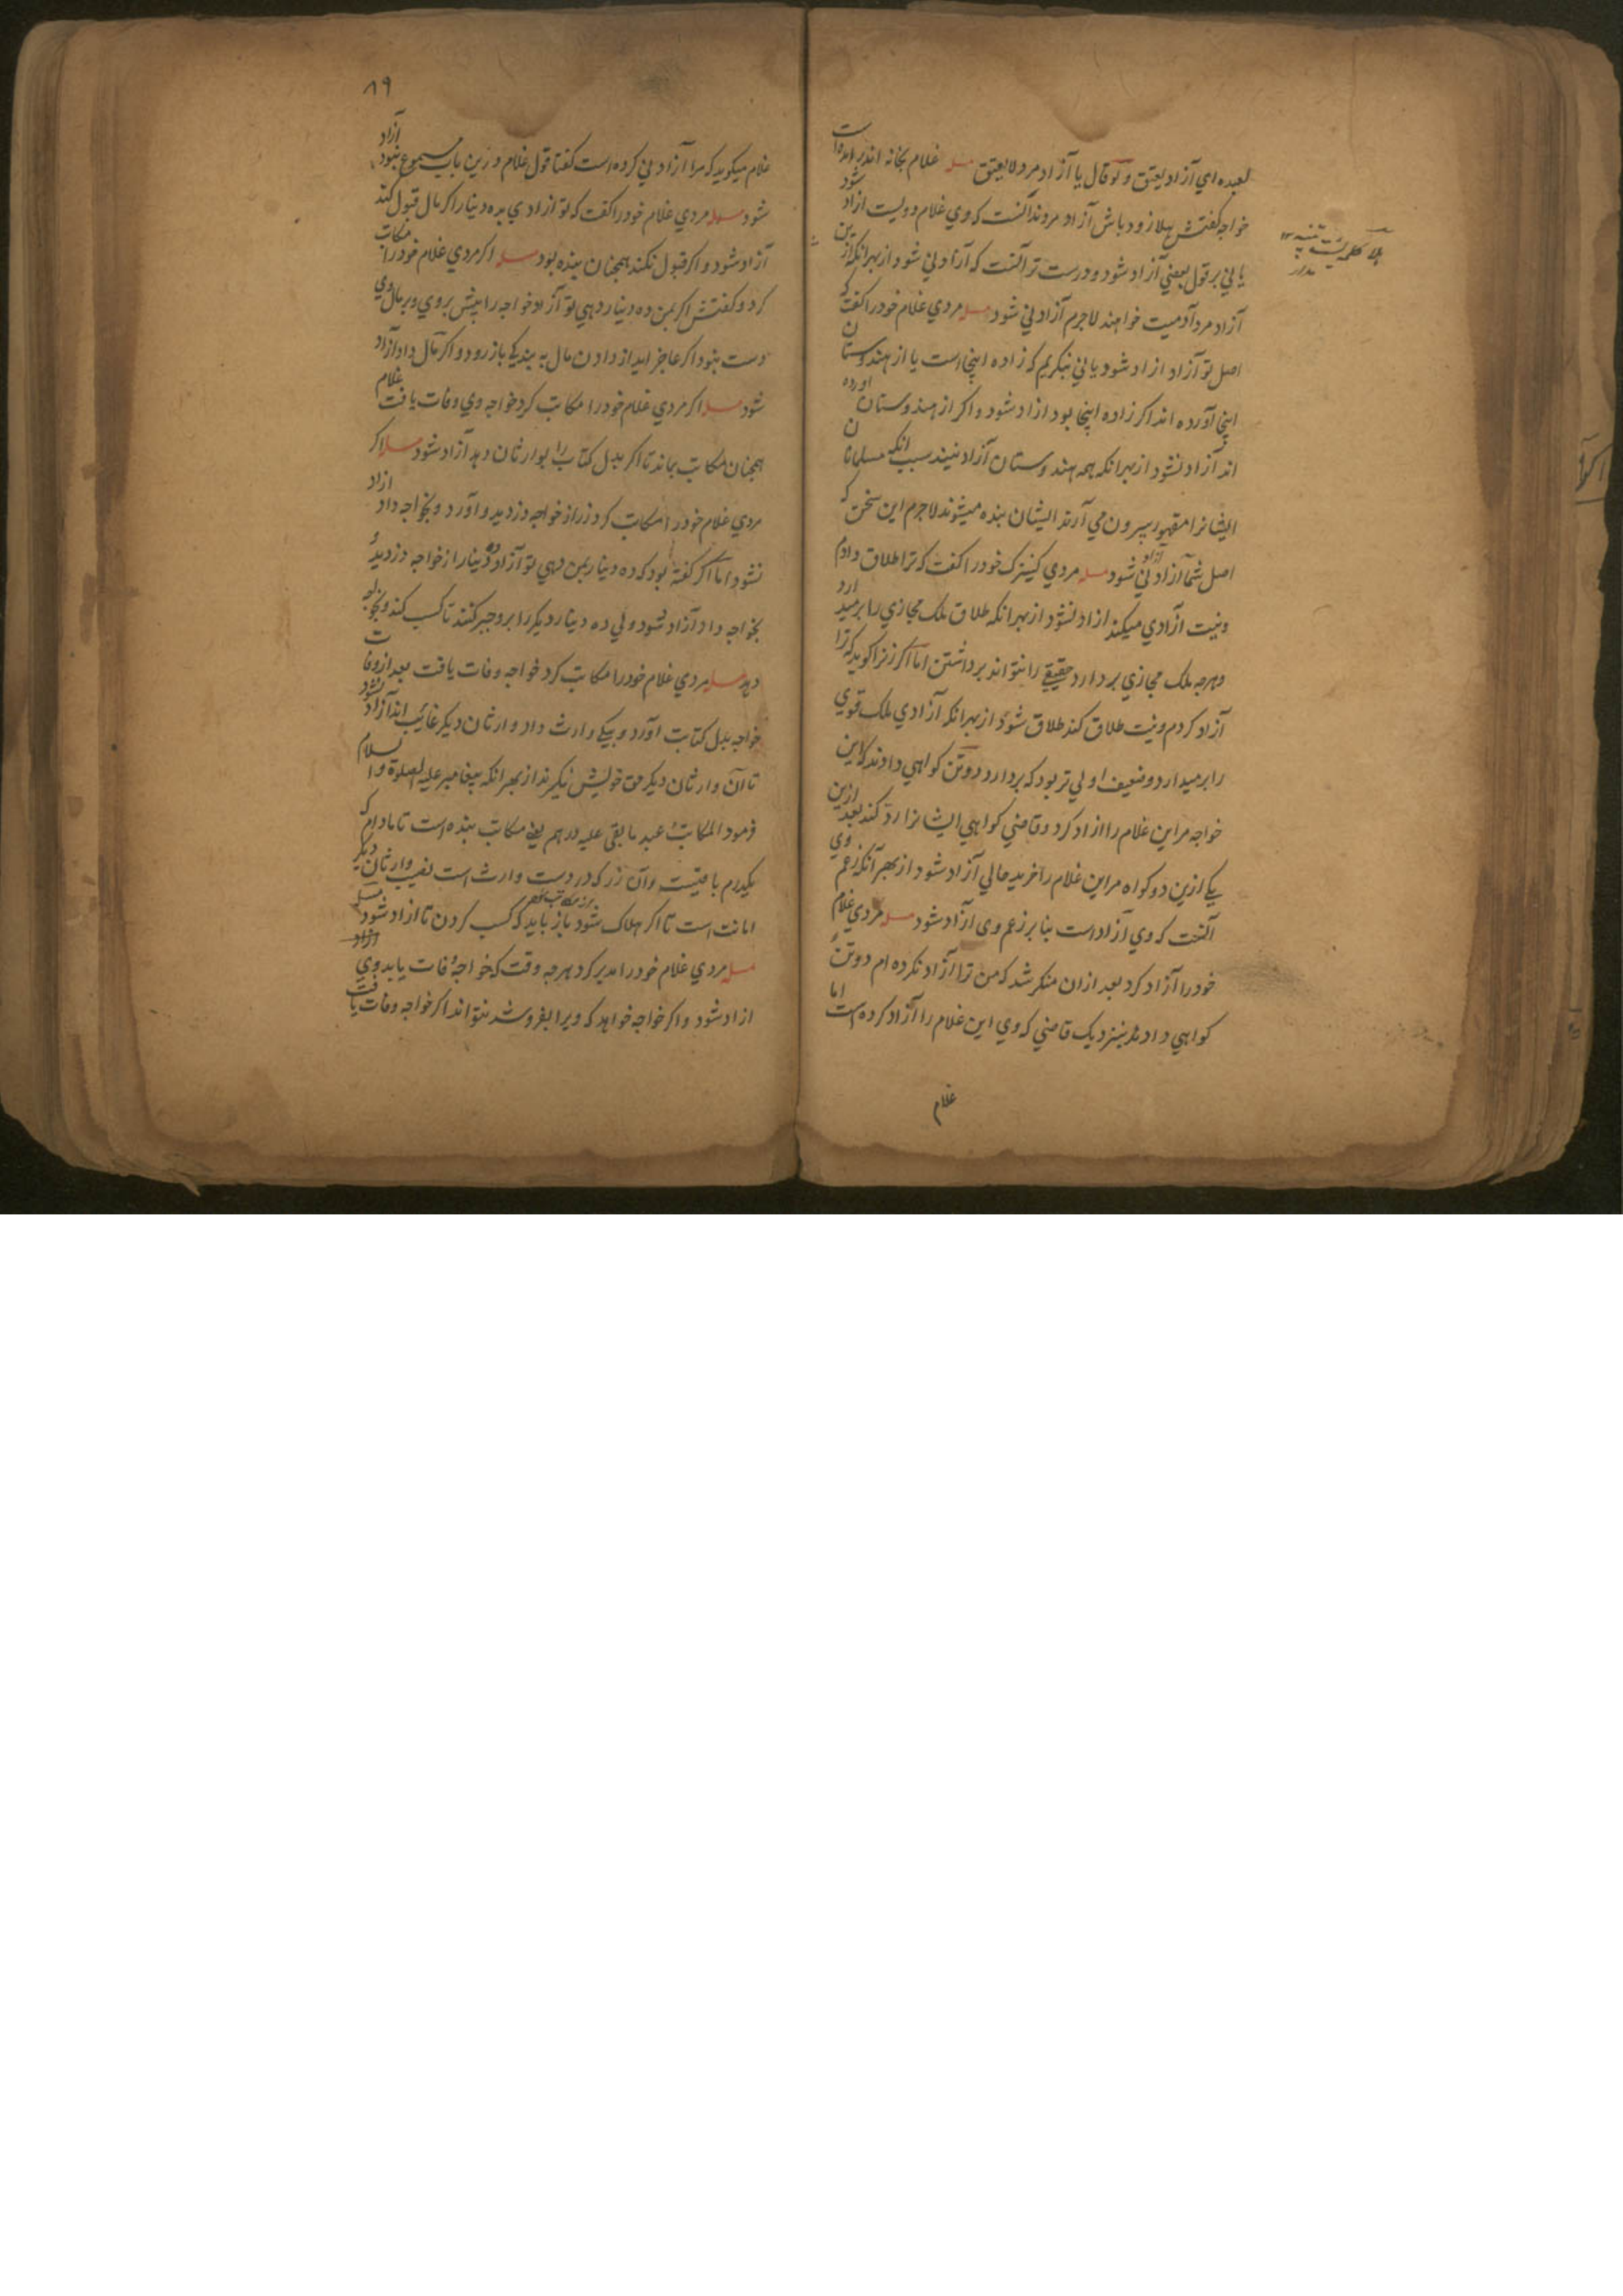 لعبده اي آزاد يعتق ولو قال يا آزاد مرد لا يعتق مسله غلام بخانه اندر امد وا
خواجه گفتش هلا زود باش آزاد مرد آنست كه وي غلام دويست ازاد شود
يا ني بر قول بعضي آزاد شود و درست تر آنست كه آزاد ني شود از بهر آنكه از
آزاد مرد آدميت خواهند لاجرم آزاد ني شود مسله مردي غلام خود را گفت كه
اصل تو آزاد ازاد شود يا ني بنگريم كه زاده اينجا است يا از هندوستان
اينجا آورده اند اگر زاده اينجا بود ازاد شود و اگر از هندوستان اورده
اند آزاد نشود از بهر انكه همه هندوستان آزاد نيند سبب انكه مسلمانان
ايشانرا مقهور بيرون مي آرند ايشان بنده ميشوند لاجرم اين سخن كه
اصل شما آزاد ازاد ني شود مسله مردي كنيزك خود را گفت كه ترا طلاق دادم
و نيت آزادي ميكند ازاد نشود از بهر انكه طلاق ملك مجازي را برميدارد
و هرچه ملك مجازي بردارد حقيقي را نتواند برداشتن اما اگر زنرا گويد كه ترا
آزاد كردم و نيت طلاق كند طلاق شود از بهر انكه آزادي ملك قوي
را برميدارد و ضعيف اولي تر بود كه بردارد دو تن گواهي دادند كه اين
خواجه مر اين غلام را ازاد كرد و قاضي گواهي ايشانرا رد كند بعد ازين
يكي ازين دو گواه مر اين غلام را خريد حالي آزاد شود از بهر آنكه زعم وي
آنست كه وي آزاد است بنا بر زعم وي آزاد شود مسله مردي غلام
خود را آزاد كرد بعد ازان منكر شد كه من ترا آزاد نكرده ام دو تن
گواهي دادند بنزديك قاضي كه وي اين غلام را آزاد كرده است اما
غلام
۸۹
غلام ميگويد كه مرا آزاد ني كرده است گفتا قول غلام درين باب مسموع نبود آزاد
شود مسله مردي غلام خود را گفت كه تو ازادي بده دينار اگر مال قبول كند
آزاد شود و اگر قبول نكند همچنان بنده بود مسله اگر مردي غلام خود را مكاتب
كرد و گفتش اگر بمن ده دينار دهي تو آزاد خواجه را بيش بر وي و بر مال وي
دست نبود اگر عاجز ايد از دادن مال به بندگي باز رود و اگر مال داد آزاد
شود مسله اگر مردي غلام خود را مكاتب كرد خواجه وي وفات يافت غلام
همچنان مكاتب بماند تا اگر بدل كتابت را بوارثان دهد آزاد شود مسله اگر
مردي غلام خود را مكاتب كرد زر از خواجه دزديد و آورد و بخواجه داد ازاد
نشود اما اگر گفته بود كه ده دينار بمن دهي تو آزاد ده دينار از خواجه دزديده
بخواجه داد آزاد شود ولي ده دينار ديگر را بر وجبر كنند تا كسب كند و بخواجه
دهد مسله مردي غلام خود را مكاتب كرد خواجه وفات يافت بعد از وفات
خواجه بدل كتابت آورد و بيكي وارث داد وارثان ديگر غائب اند آزاد نشود
تا آن وارثان ديگر حق خويش نگيرند از بهر انكه پيغامبر عليه الصلوة والسلام
فرمود المكاتب عبد ما بقي عليه درهم يعني مكاتب بنده است تا مادام كه
يكدرم باقيست و آن زر كه در دست وارث است نصيب وارثان ديگر
امانت است تا اگر هلاك شود باز بايد كسب كردن تا ازاد شود
مسله مردي غلام خود را مدبر كرد هرچه وقت كه خواجه وفات يابد وي آزاد
ازاد شود و اگر خواجه خواهد كه ويرا بفروشد نتواند اگر خواجه وفات يافت